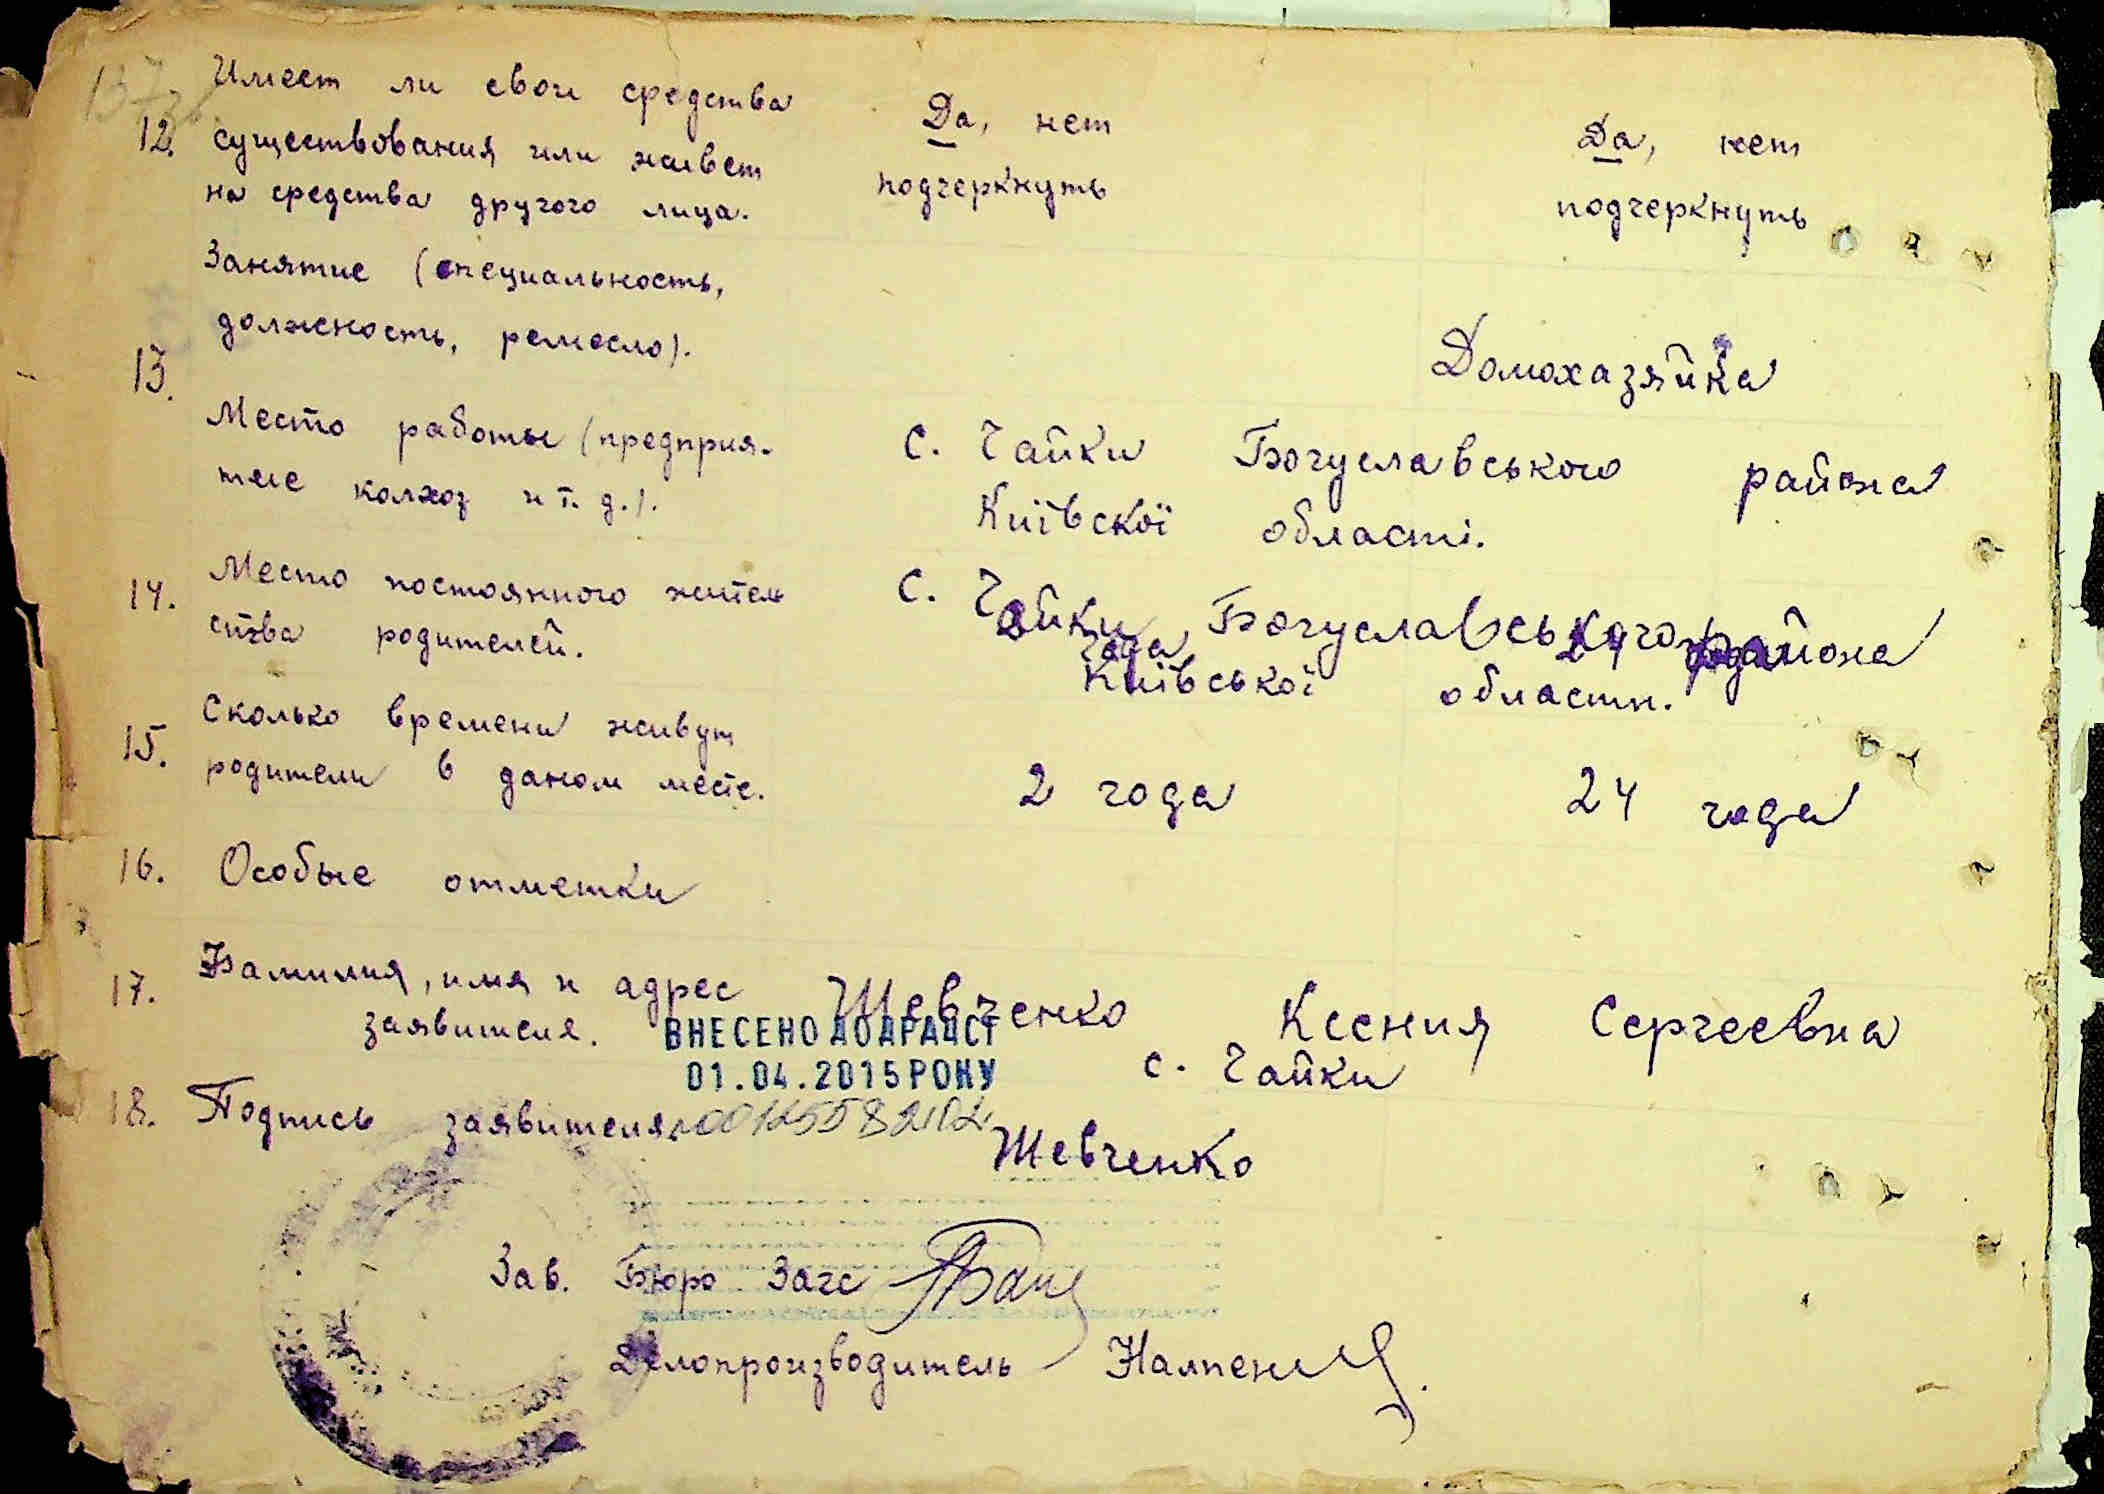 Имеет ли свои средства
12. существования или живет Да, нет Да, нет
на средства другого лица. подчеркнуть подчеркнуть
Занятие (специальность,
должность, ремесло). Домохазяйка
13.
Место работы (предприя- с. Чайки Богуславського района
тие колхоз и т. д.). Київскої області.
14. Место постоянного житель с. Чайки Богуславського района
ства родителей. Київської области.
Сколько времени живут
15. родители в даном месте. 2 года 24 года
16. Особые отметки
17. Фамилия, имя и адрес Шевченко Ксения Сергеевна
заявителя. с. Чайки
ВНЕСЕНО ДО ДРАЦСГ
01.04.2015 РОКУ
18. Подпись заявителя Шевченко
Зав. Бюро Загс
Делопроизводитель